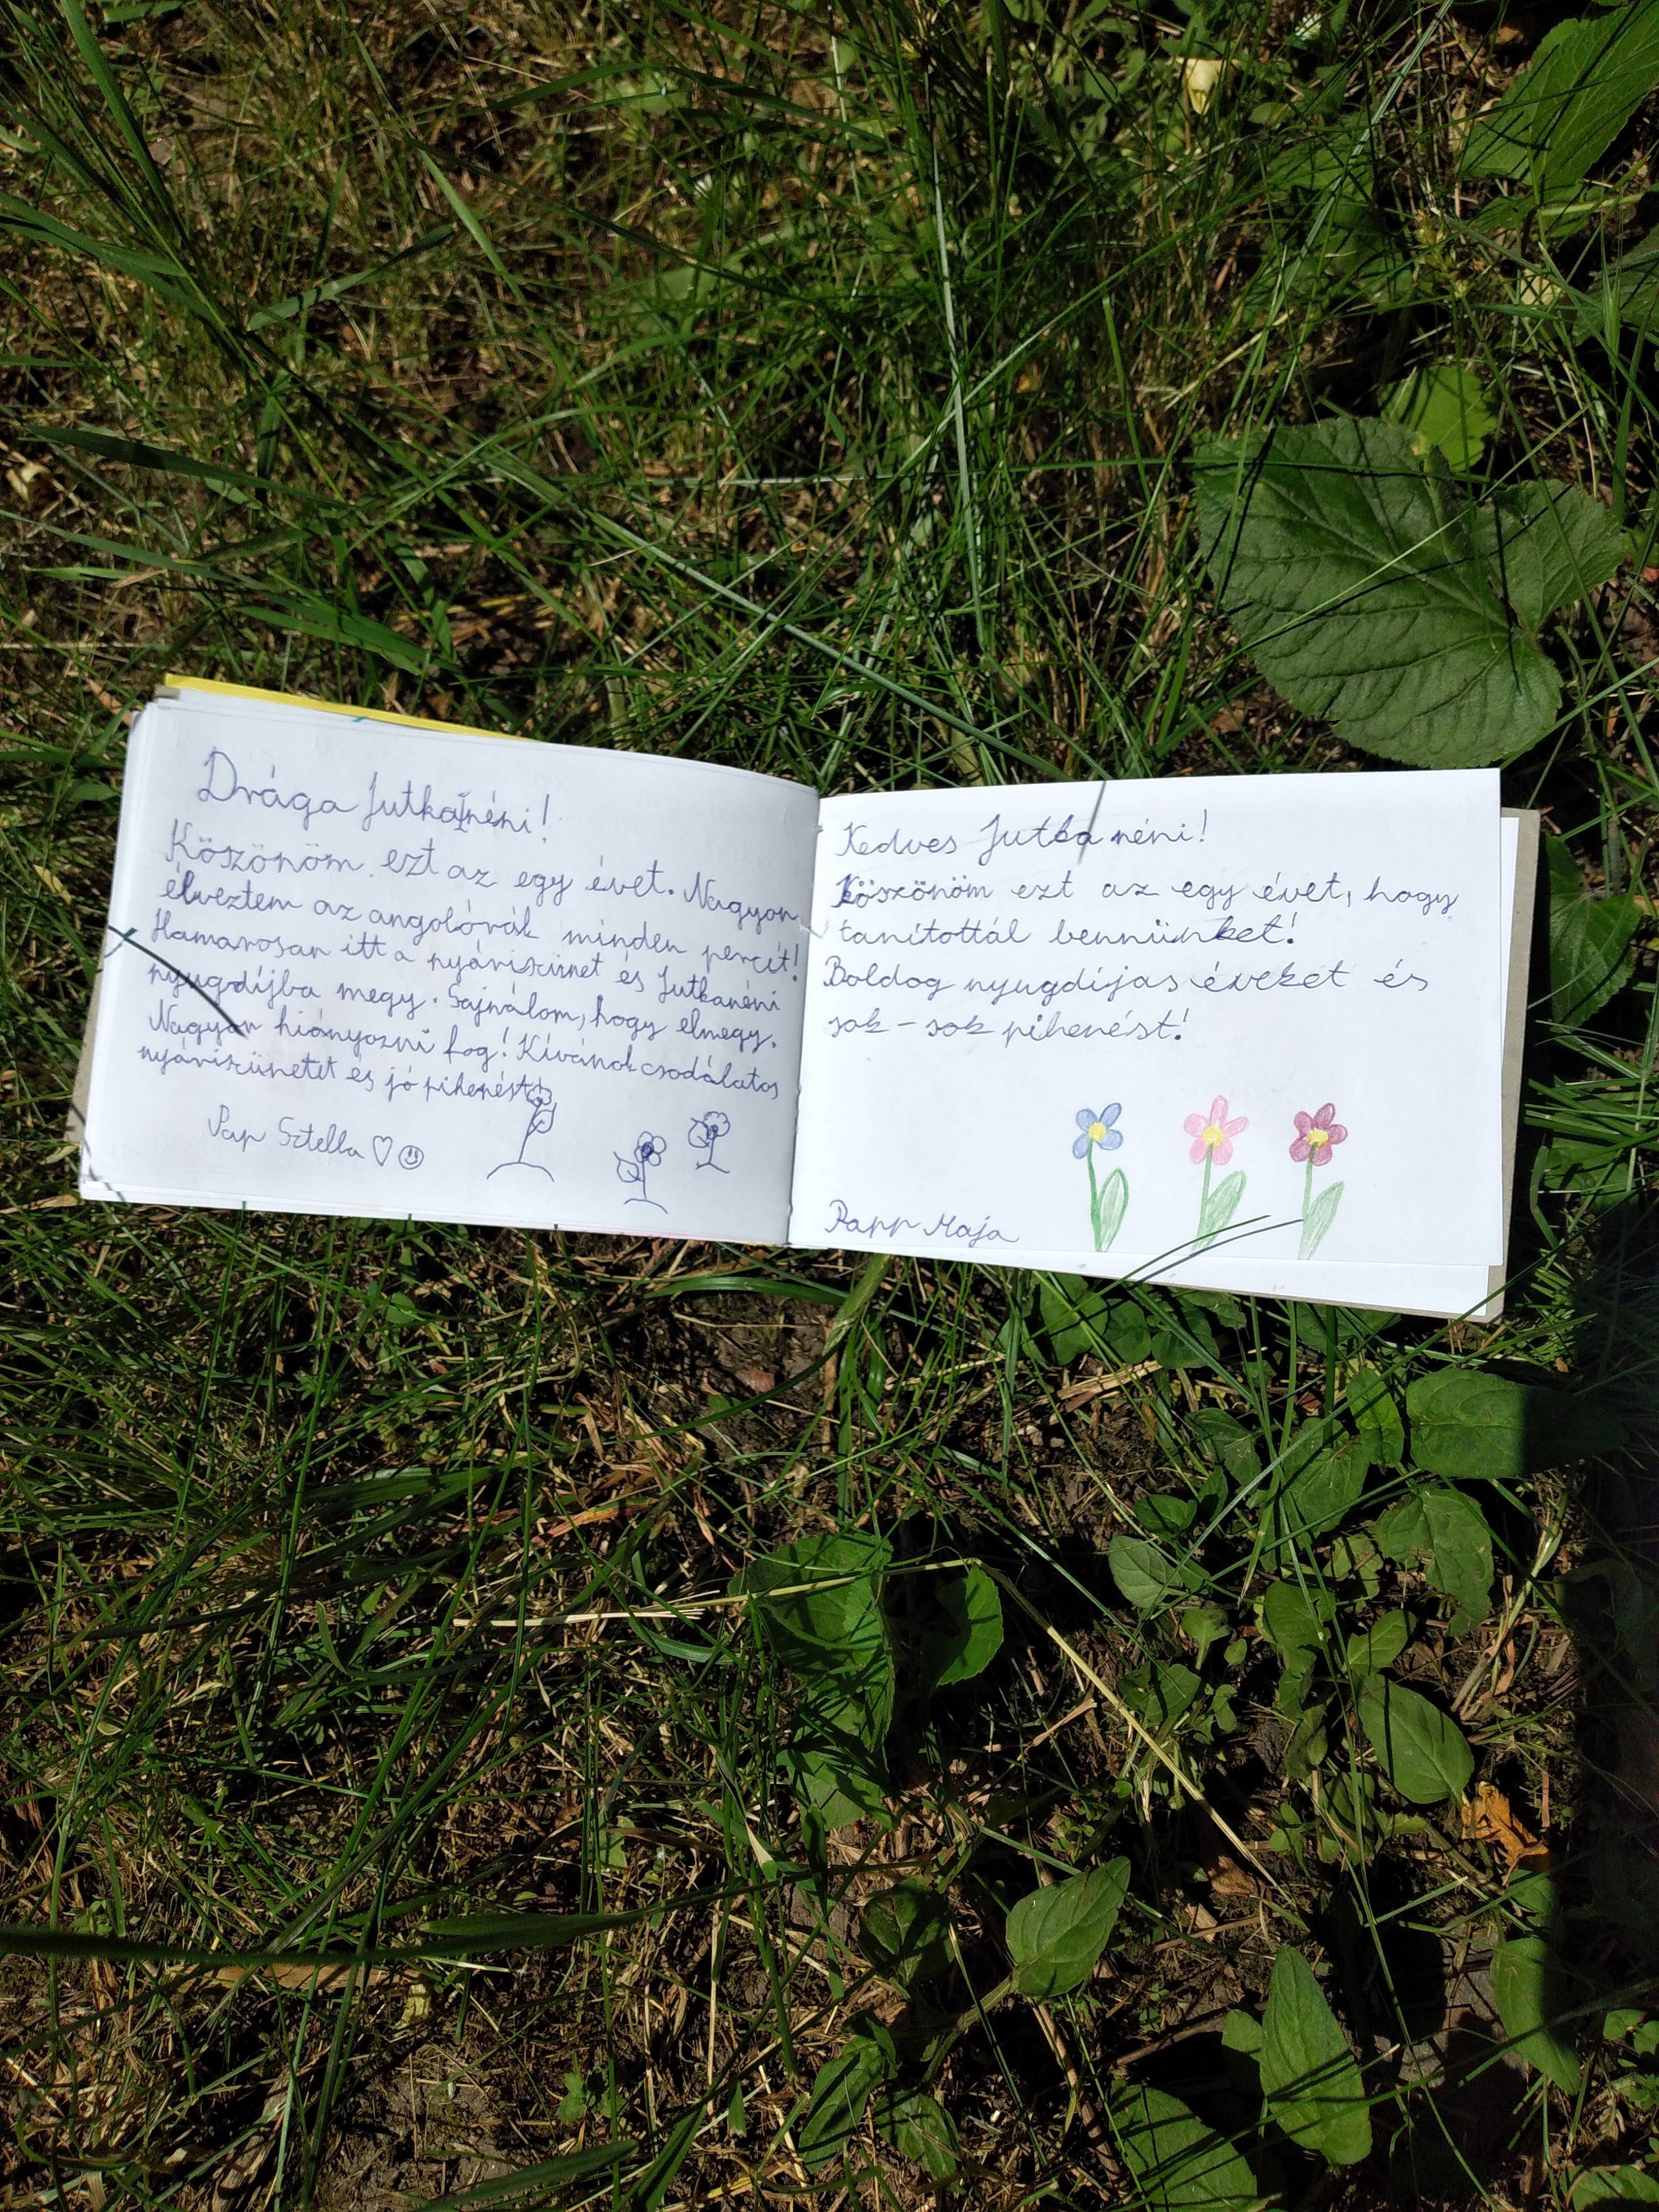 Drága Jutkanéni!
Köszönöm ezt az egy évet. Nagyon
élveztem az angolórák minden percét!
Hamarosan itt a nyáriszünet és Jutkanéni
nyugdíjba megy. Sajnálom, hogy elmegy.
Nagyon hiányozni fog! Kívánok csodálatos
nyáriszünetet es jó pihenést!
Pap Sztella
Kedves Jutka néni!
Köszönöm ezt az egy évet, hogy
tanítottál bennünket!
Boldog nyugdíjas éveket és
sok-sok pihenést!
Papp Maja